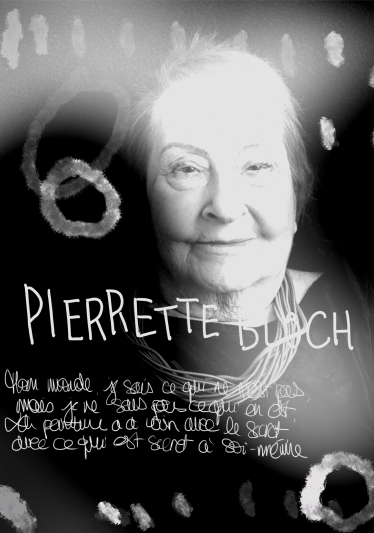 PIERRETTE BLOCH
Mon monde je sais ce qui ne l'est pas
mais je ne sais pas ce qui en est
La peinture a à voir avec le sacré
avec ce qui est sacré à soi-même